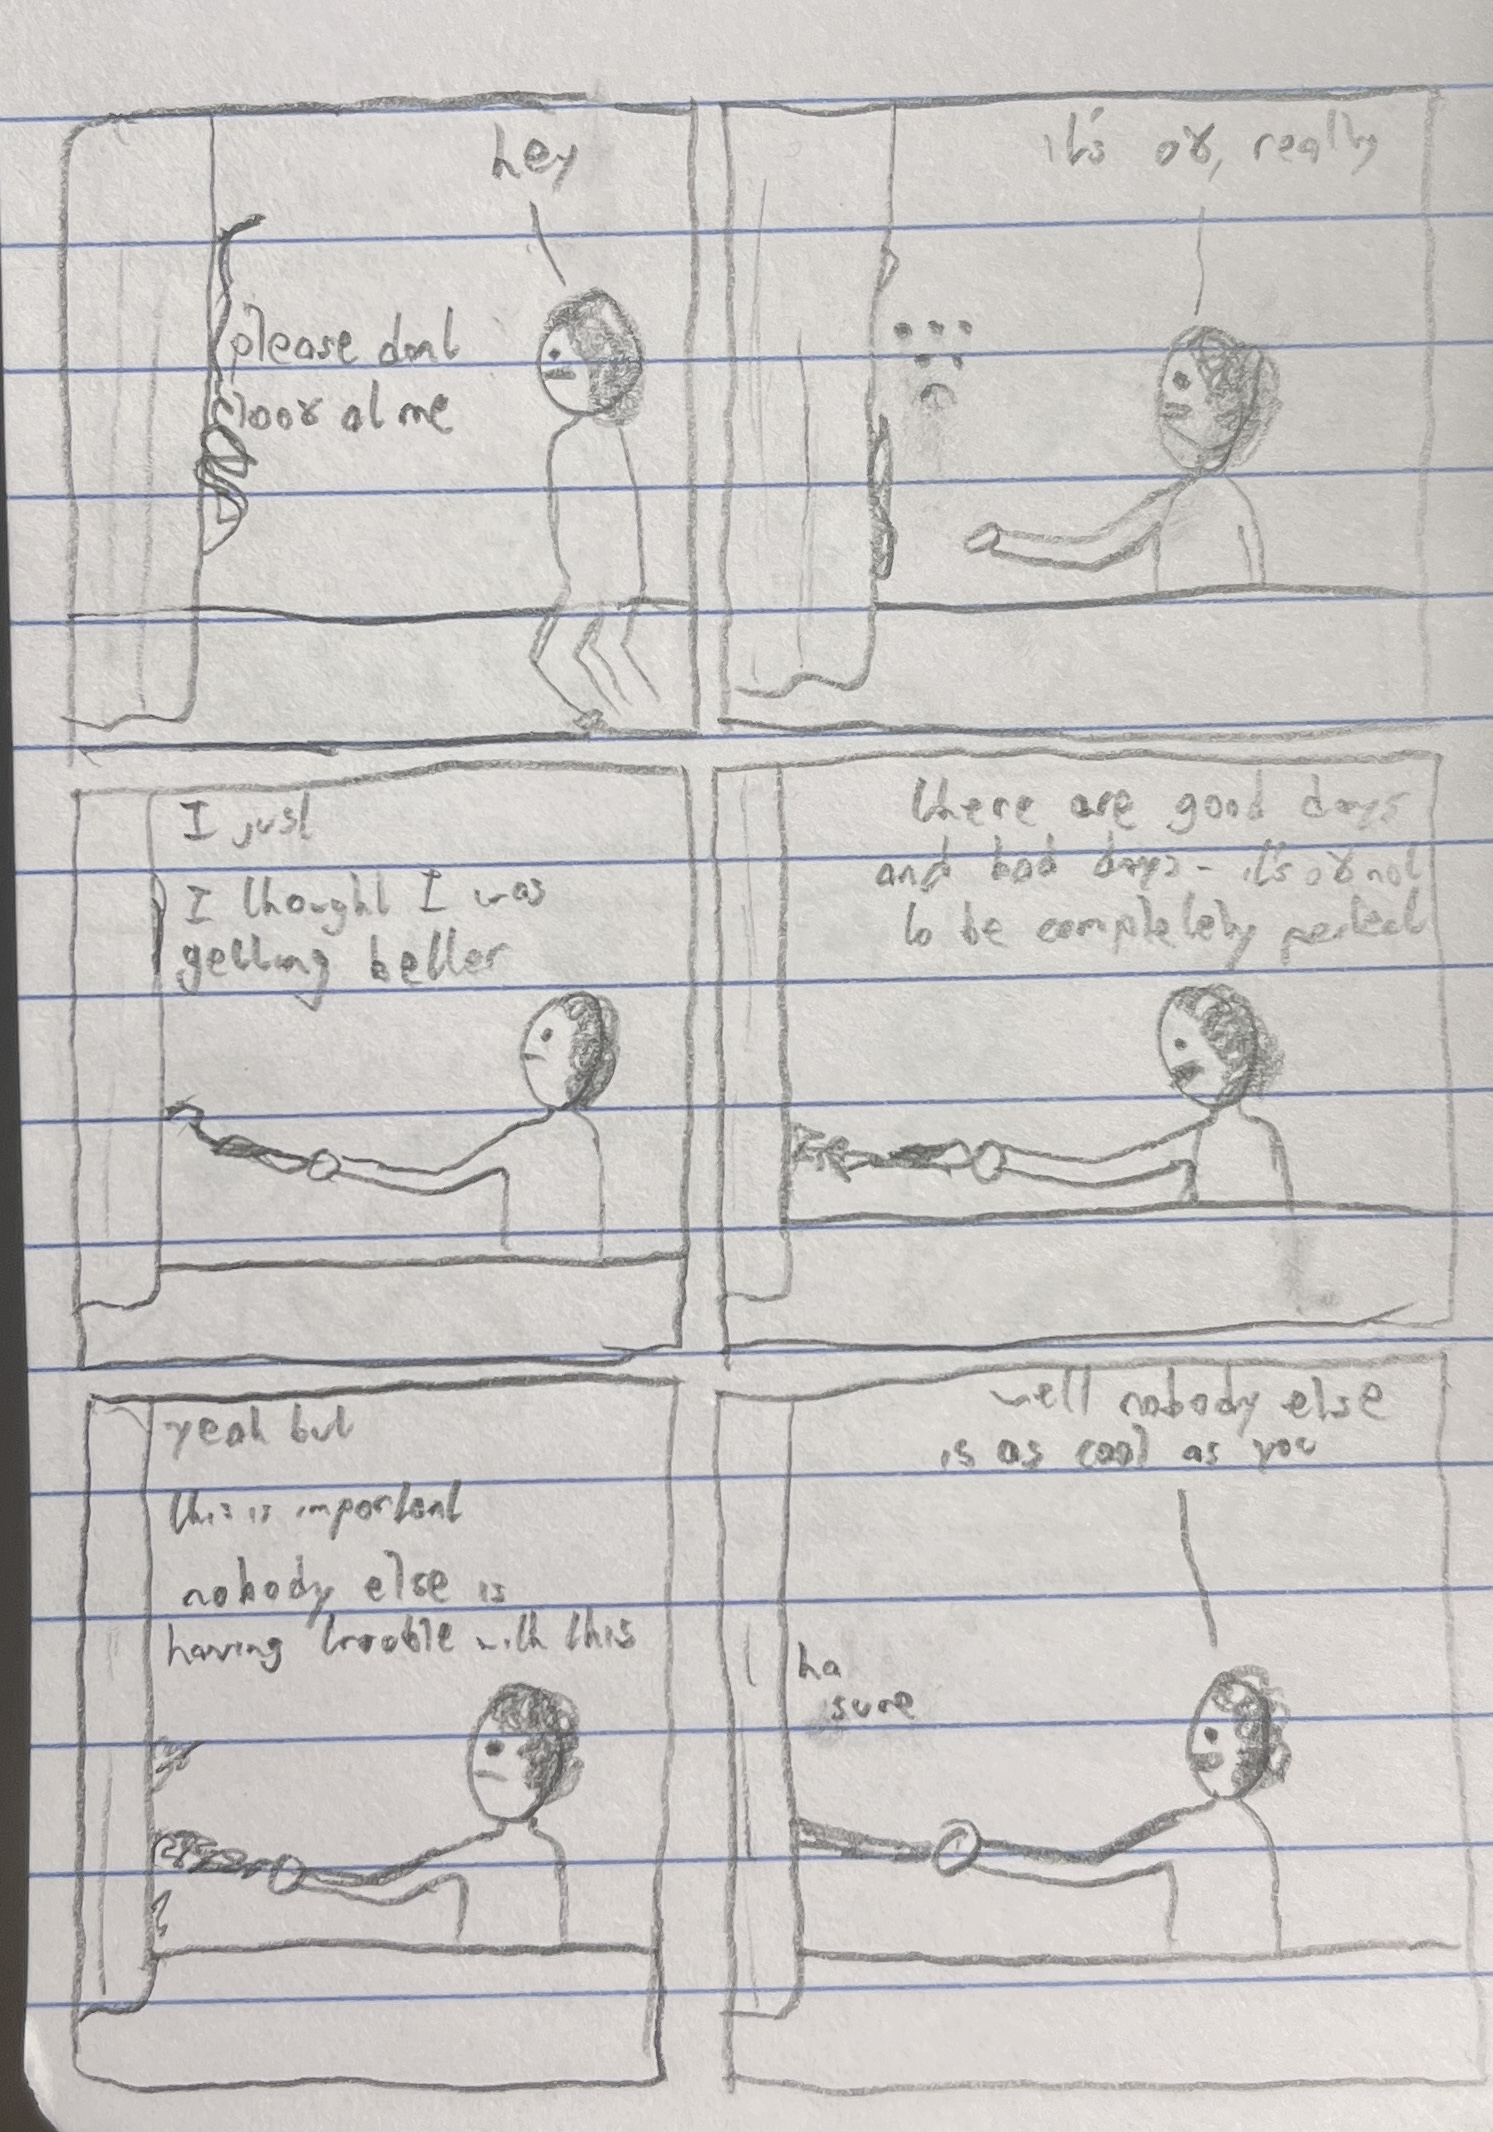 hey
please dont
look at me
it's ok, really
......
I just
I thought I was
getting better
there are good days
and bad days - it's ok not
to be completely perfect
yeah but
this is important
nobody else is
having trouble with this
well nobody else
is as cool as you
ha
sure